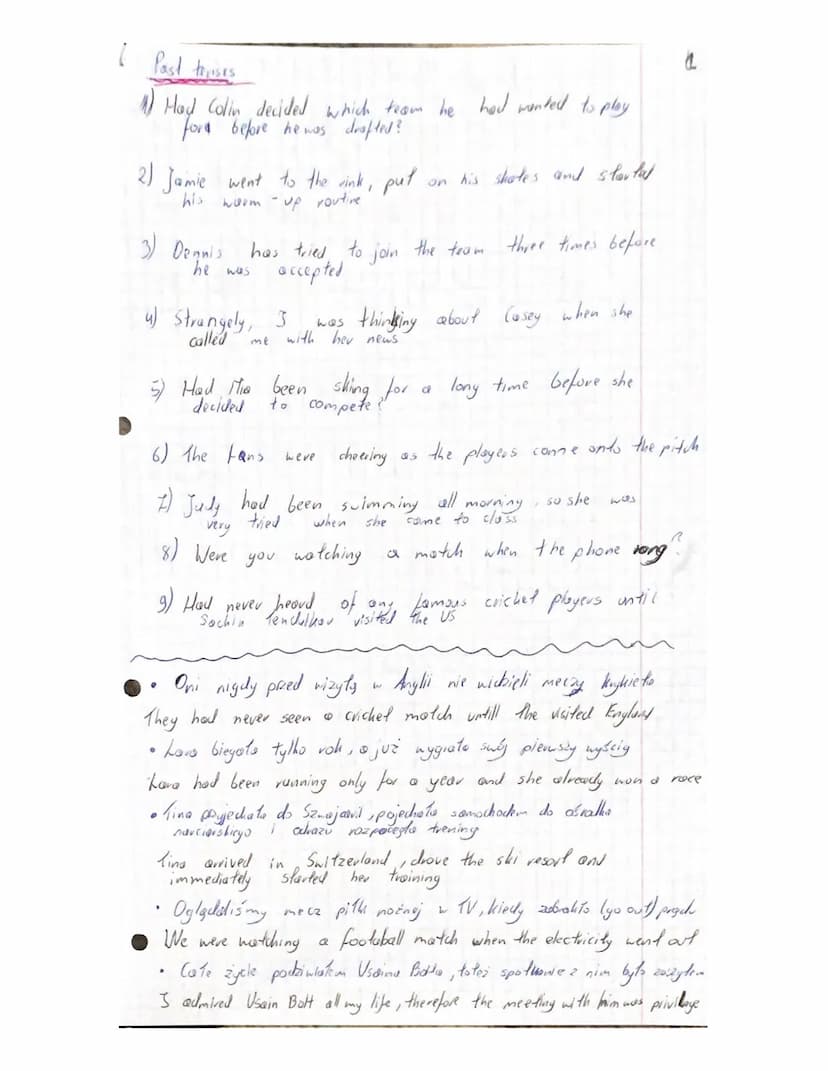 Past tenses
1) Had Colin decided which team he had wanted to play
ford before he was drafted?
2) Jamie went to the rink, put on his skates and started
his warm-up routine
3) Dennis has tried to join the team three times before
he was accepted
4) Strangely, I was thinking about Casey when she
called me with her news
5) Had been skiing for a long time before she
decided to compete?
6) The fans were cheering as the players came onto the pitch
7) Judy had been swimming all morning, so she was
very tried when she came to class
8) Were you watching a match when the phone rang?
9) Had never heard of any famous cricket players until
Sachin Tendulkar visited the US
• Oni nigdy przed wizytą w Anglii nie widzieli meczy krykieta
They had never seen a cricket match untill the visited England
• Lara biegała tylko rok, a już wygrała swój pierwszy wyścig
Lara had been running only for a year and she already won a race
• Tina przyjechała do Szwajcarii, pojechała samochodem do ośrodka
narciarskiego i odrazu rozpoczęła trening
Tina arrived in Switzerland, drove the ski resort and
immediately started her training
• Oglądaliśmy mecz piłki nożnej w TV, kiedy zabrakło (go out) prądu
We were watching a football match when the electricity went out
• Całe życie podziwiałem Usaina Bolta, toteż spotkanie z nim było zaszczytem
I admired Usain Bolt all my life, therefore the meeting with him was privilage